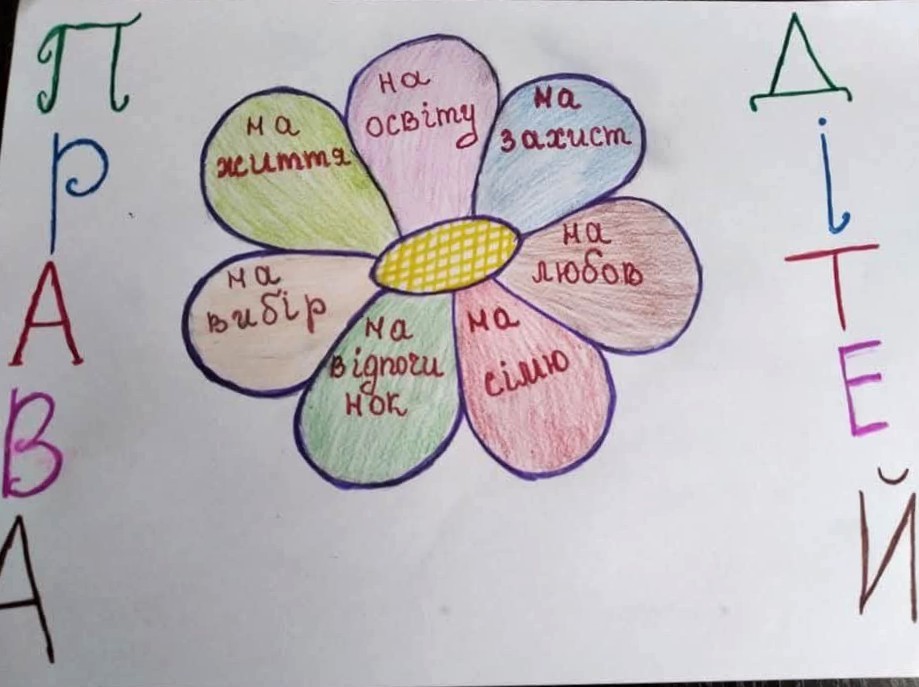 П
Р
А
В
А
на
життя
на
освіту
на
захист
на
любов
на
сімю
на
відпочи
нок
на
вибір
Д
і
Т
Е
Й